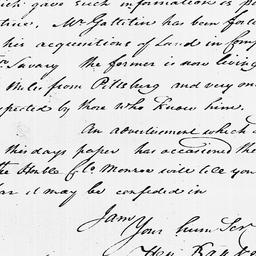 which gave such informations is po
tive, Mr Gallitin has been forte
his requisitions of Land in Com
Mr. Savary the former is now living
Miles from Pittsburg and very m
espected by those who know him.
An advertisement which a
this days paper has occasioned the
the Honble Mr Monroe will tell you
far it may be confided in
I am
Your hum Serv
Hen Banks